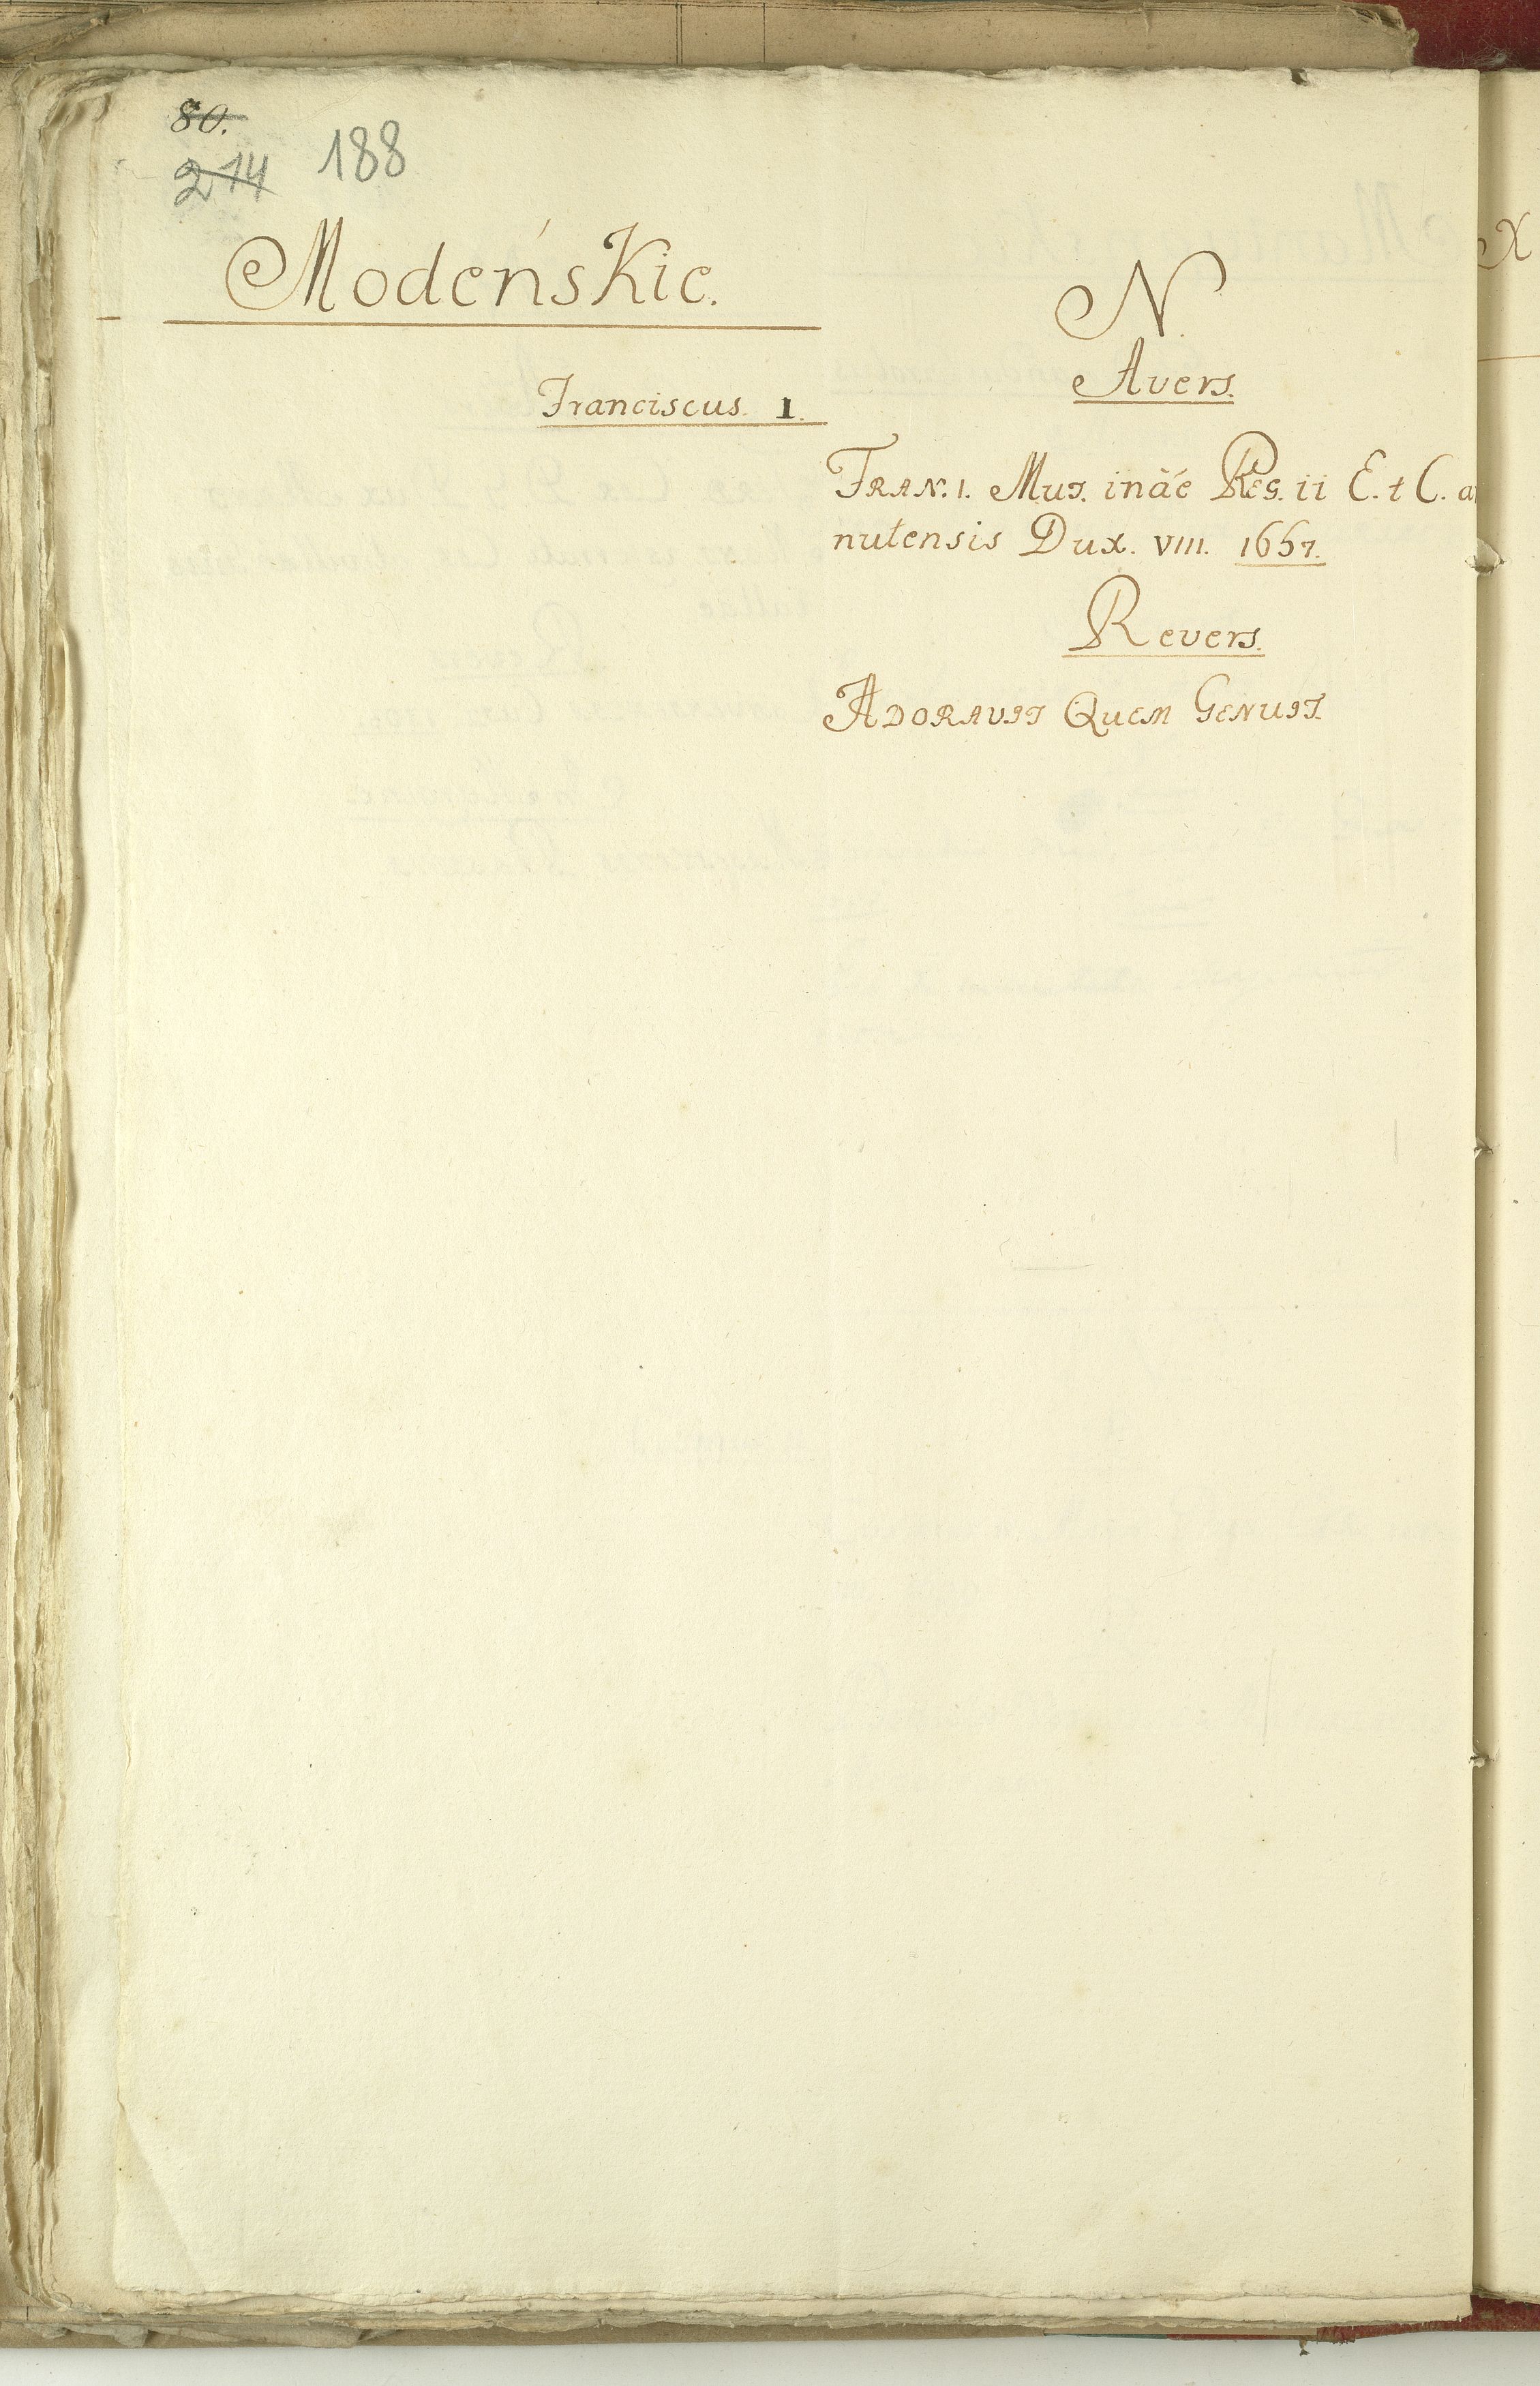 80.
214 188
Modeńskie.
N.
Avers.
Franciscus. I.
FRAN. I. Mut. inäé Reg. ii E. t C. a
nutensis Dux. VIII. 1657.
Revers.
ADORAVIT QUEM GENUIT.